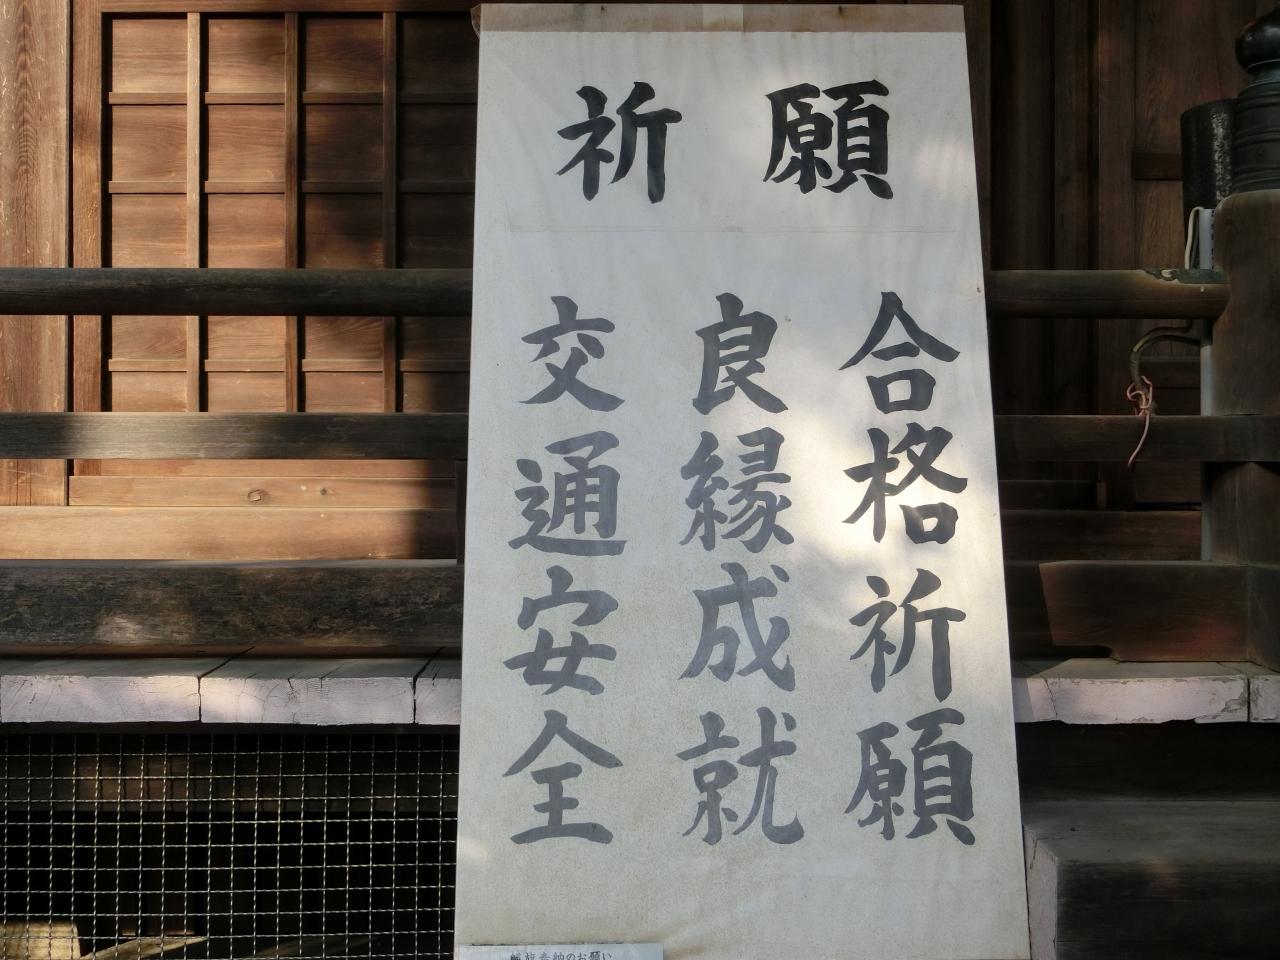 祈願
合格祈願
良縁成就
交通安全
奉納のお願い